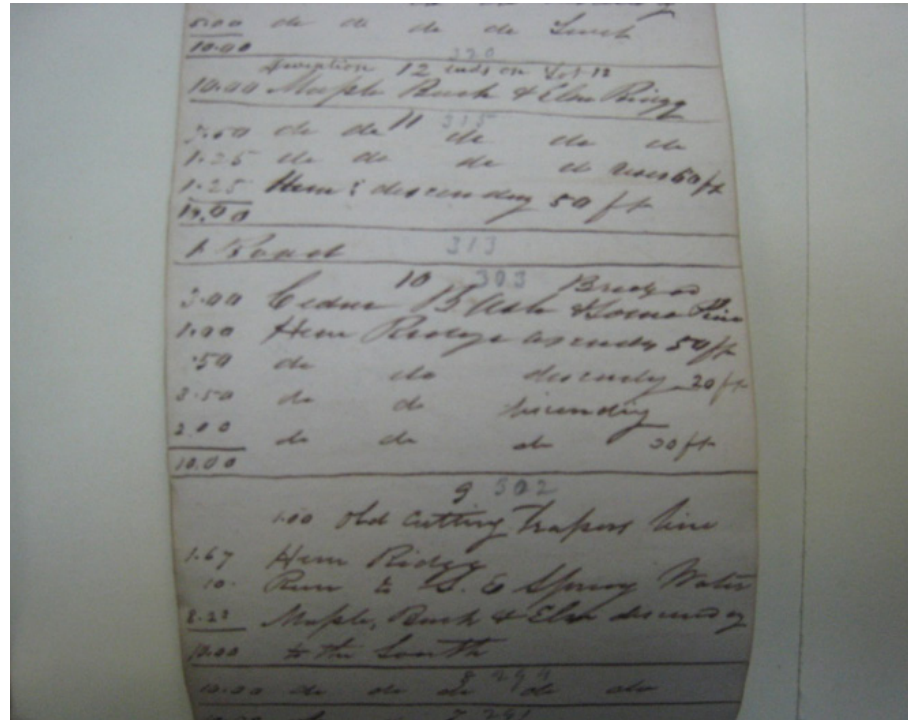 5.00 do do do do South
10.00
320
Exception 12 ends on Lot 12
10.00 Maple Buck & Elm Ridge
11 315
7.50 do do do do do
1.25 do do do do rises 60 ft
1.25 Hem : descending 50 ft
10.00
1 Road 313
10 303
3.00 Cedar B Ash & Some Pine
1.00 Hem Ridge ascends 50 ft
.50 do do descends 20 ft
3.50 do do
2.00 do do do 20 ft
10.00
9 302
1.00 Old Cutting Trapers line
1.67 Hem Ridge
10. Run to S. E Spring Water
8.23 Maple, Buck & Elm descending
10.00 to the South
8 299
10.00 do do do do do
7 291